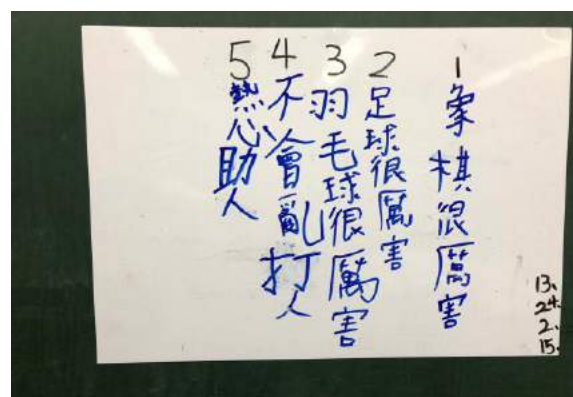 1 象棋很厲害
2 足球很厲害
3 羽毛球很厲害
4 不會亂打人
5 熱心助人
13.
24.
2.
15.